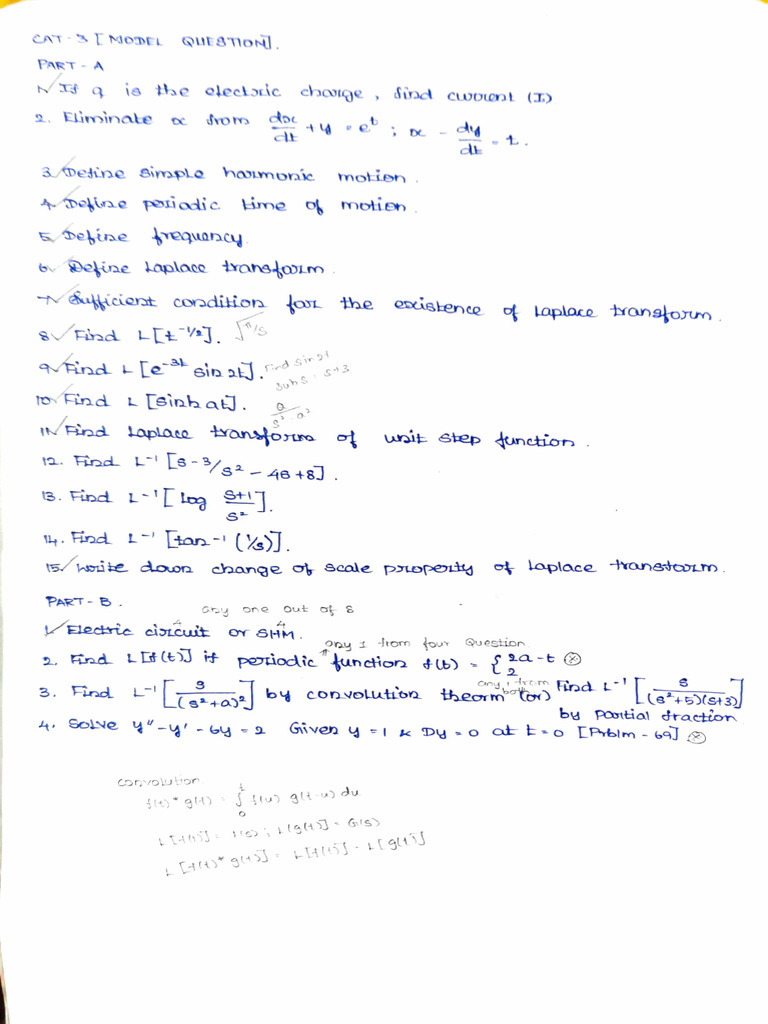 CAT - 3 [MODEL QUESTION].
PART - A
1. If q is the electric charge, find current (I)
2. Eliminate x from dx/dt + y = e^t ; x - dy/dt = t.
3. Define simple harmonic motion.
4. Define periodic time of motion.
5. Define frequency
6. Define Laplace transform.
7. Sufficient condition for the existence of Laplace transform.
8. Find L[t^-1/2]. √π/s
9. Find L[e^-3t sin 2t]. find sin 2t
subs : s+3
10. Find L [sinh at]. a/s² a²
11. Find Laplace transform of unit step function.
12. Find L^-1 [s - 3/s² - 4s + 8].
13. Find L^-1 [log s+1/s²].
14. Find L^-1 [tan^-1 (1/s)].
15. Write down change of scale property of Laplace transform.
PART - B. any one out of 8
4 4
1. Electric circuit or SHM.
any 1 from four Question
2. Find L[f(t)] if periodic function f(t) = {2a-t
2
any 1 from both
3. Find L^-1 [s/(s²+a)²] by convolution theorm (or) Find L^-1 [s/(s²+5)(s+3)]
by Partial fraction
4. Solve y'' - y' - 6y = 2 Given y = 1 & Dy = 0 at t = 0 [Prblm - 69]
convolution
f(t) * g(t) = ∫₀^t f(u) g(t-u) du
L[f(t)] = f(s) ; L[g(t)] = G(s)
L[f(t) * g(t)] = L[f(t)] . L[g(t)]